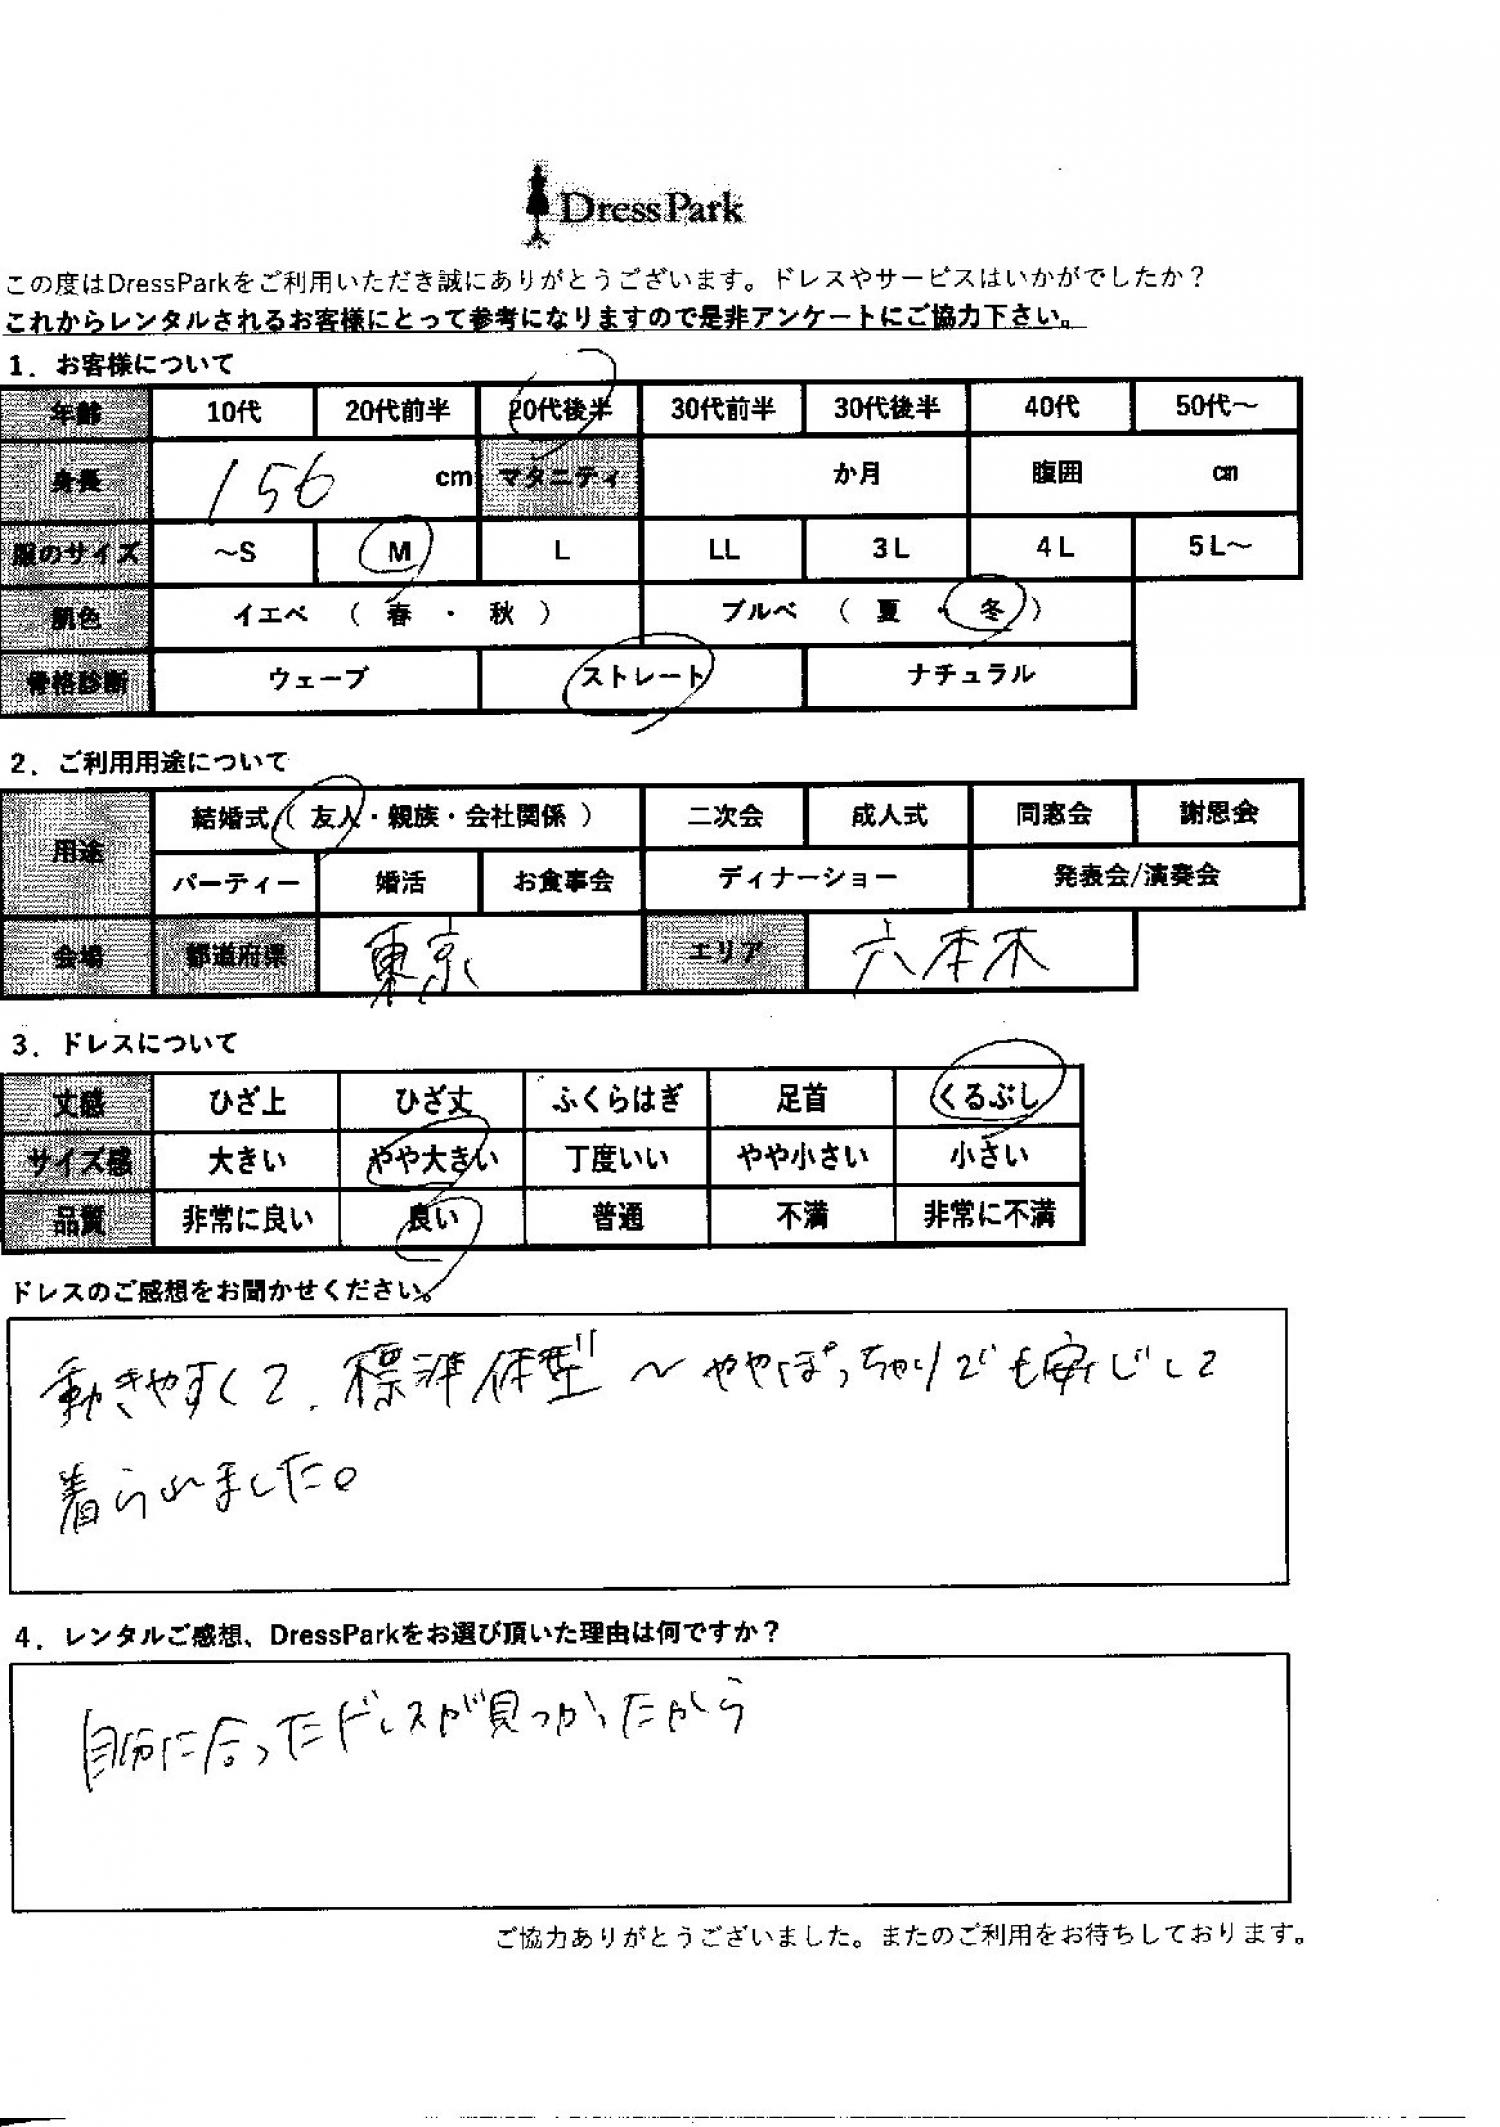 DressPark
この度はDressParkをご利用いただき誠にありがとうございます。ドレスやサービスはいかがでしたか？
これからレンタルされるお客様にとって参考になりますので是非アンケートにご協力下さい。
1．お客様について
年齢 10代 20代前半 20代後半 30代前半 30代後半 40代 50代～
身長 156 cm マタニティ か月 腹囲 cm
服のサイズ ～S M L LL 3L 4L 5L～
肌色 イエベ （ 春 ・ 秋 ） ブルベ （ 夏 ・ 冬 ）
骨格診断 ウェーブ ストレート ナチュラル
2．ご利用用途について
用途 結婚式（ 友人・親族・会社関係 ） 二次会 成人式 同窓会 謝恩会
パーティー 婚活 お食事会 ディナーショー 発表会/演奏会
会場 都道府県 東京 エリア 六本木
3．ドレスについて
丈感 ひざ上 ひざ丈 ふくらはぎ 足首 くるぶし
サイズ感 大きい やや大きい 丁度いい やや小さい 小さい
品質 非常に良い 良い 普通 不満 非常に不満
ドレスのご感想をお聞かせください。
動きやすくて、標準体型～ややぽっちゃりでも安心して
着られました。
4．レンタルご感想、DressParkをお選び頂いた理由は何ですか？
自分に合ったドレスが見つかったから
ご協力ありがとうございました。またのご利用をお待ちしております。